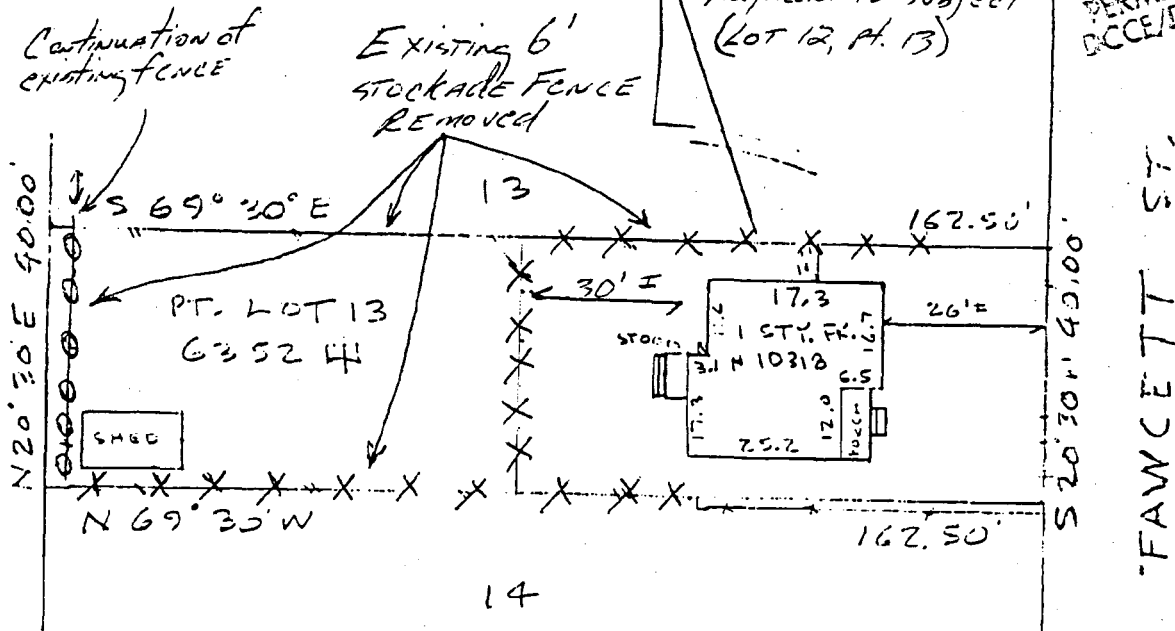 Continuation of
existing fence
Existing 6'
STOCKADE FENCE
REMOVED
(LOT 12, Pt. 13)
S 69° 30' E
13
162.50'
N 20° 30' E 40.00'
PT. LOT 13
6352
30' ±
17.3
1 STY. FR.
# 10313
16.7
26' ±
STOOP
3.1
6.5
17.3
12.0
PORCH
25.2
SHED
N 69° 30' W
162.50'
S 20° 30' W 40.00'
FAWCETT ST.
14